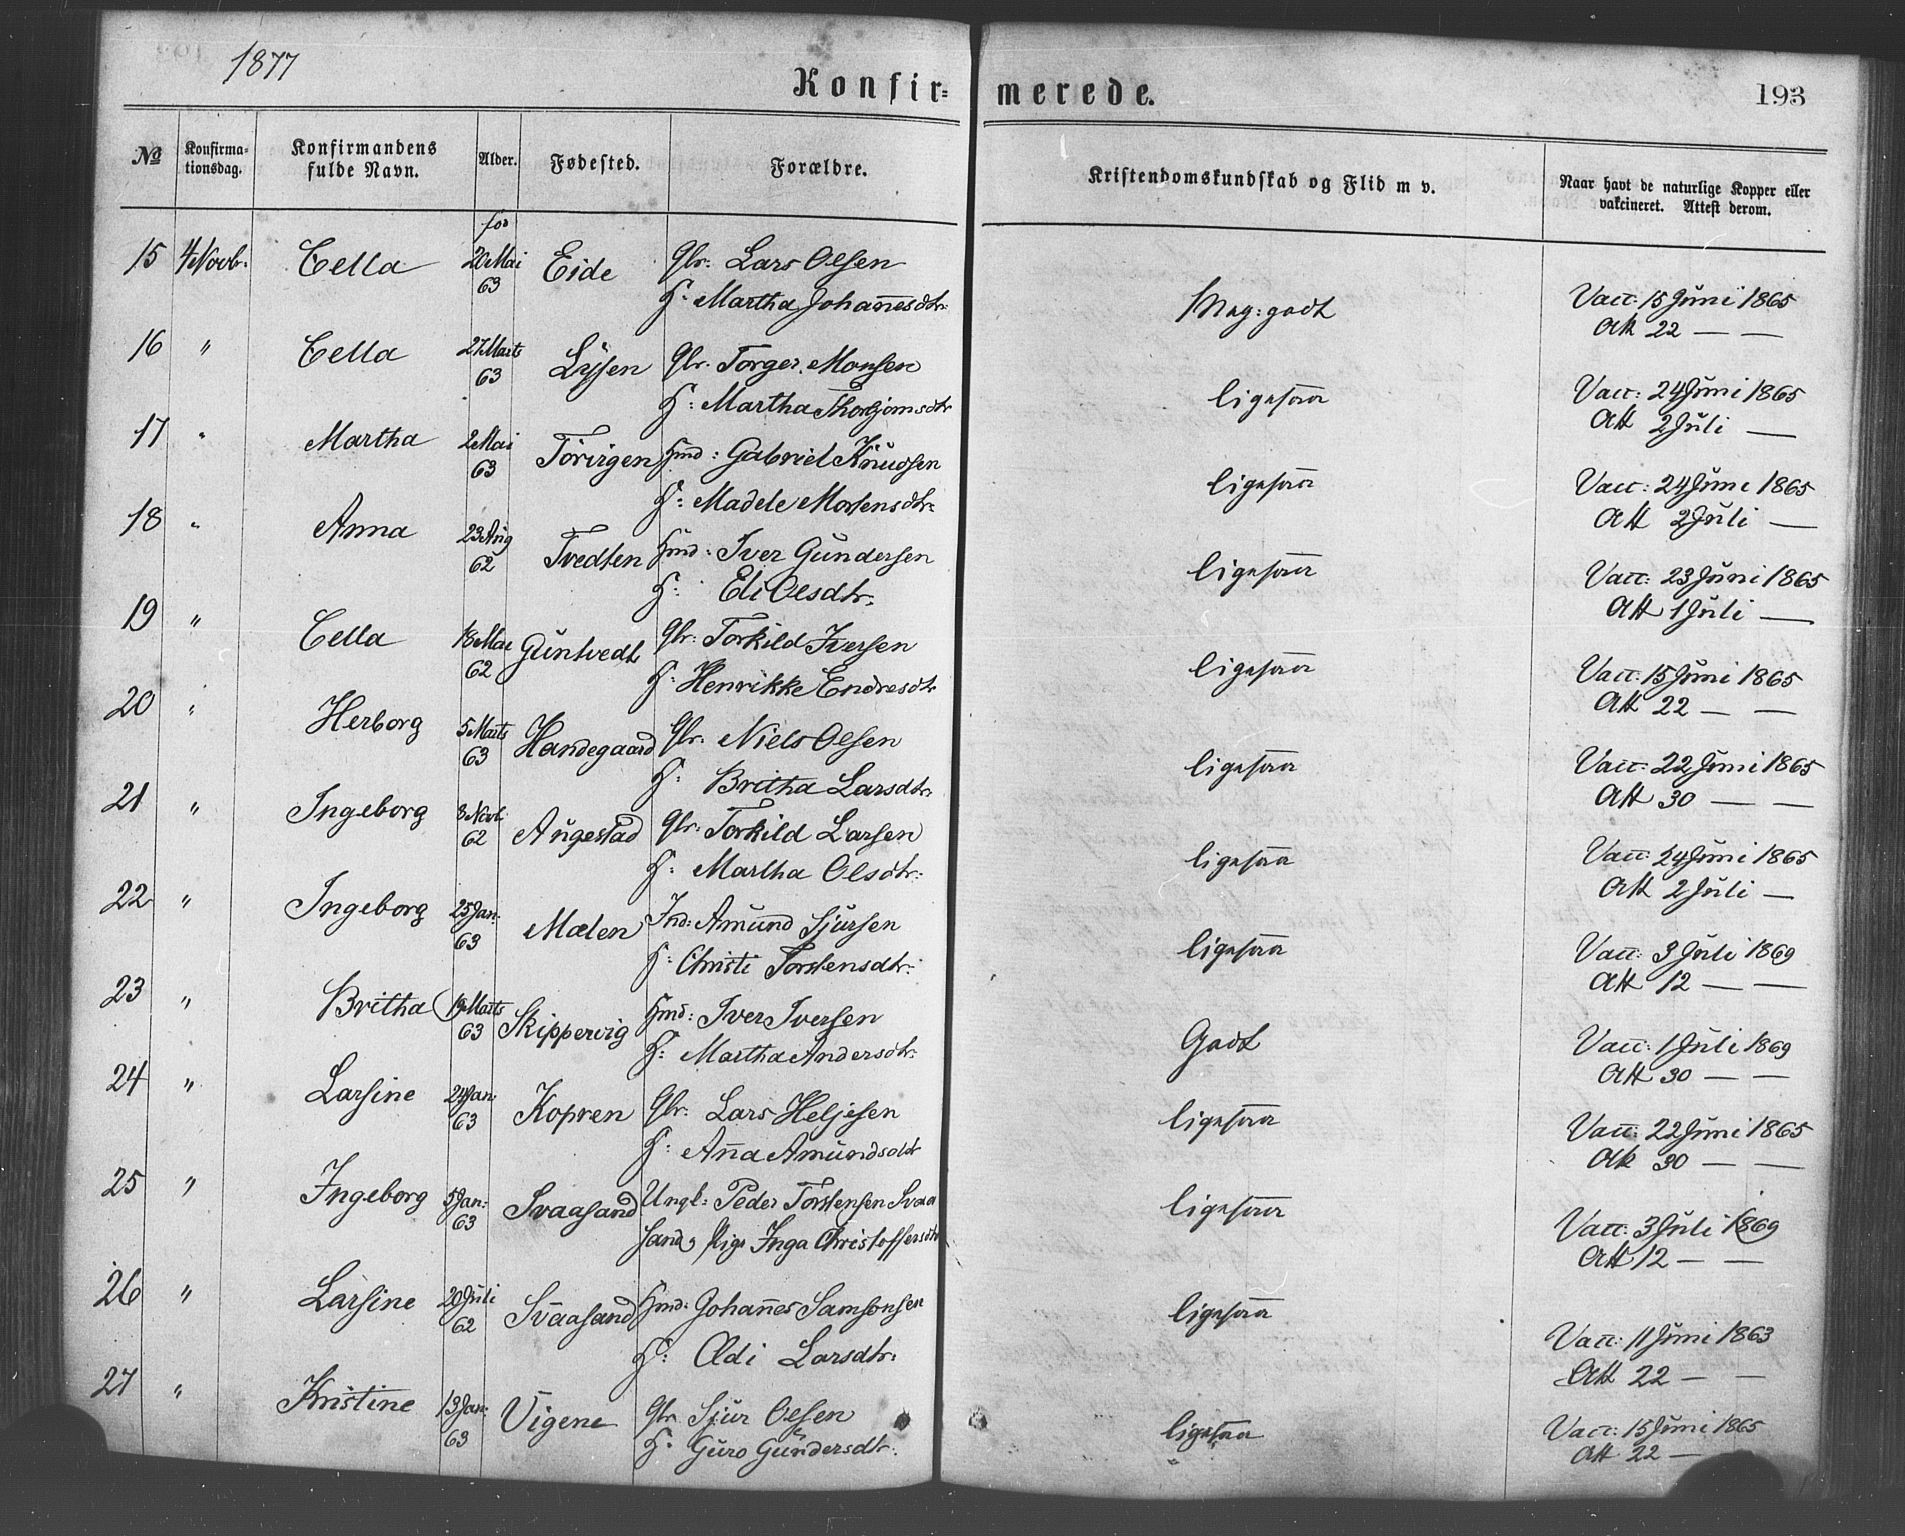 1877
Konfir= merede. 193
No Konfirma-tionsdag. Konfirmandens fulde Navn. Alder. Fødested. Forældre. Kristendomskundskab og Flid m v. Naar havt de naturlige Kopper eller vakcineret. Attest derom.
fød
15 4 Novb. Cella 20 Mai 63 Eide Gbr: Lars Olsen
H: Martha Johan̄esdtr: Meg: godt Vacc: 15 Juni 1865
Att 22 — —
16 " Cella 27 Marts 63 Lysen Gbr. Torger Monsen
H: Martha Thorbjørnsdtr ligesaa Vacc: 24 Juni 1865
Att 2 Juli —
17 " Martha 2 Mai 63 Hmd: Gabriel Knudsen
H: Madele Mortensdtr: ligesaa Vacc: 24 Juni 1865
Att 2 Juli —
18 " Anna 23 Aug 62 Tvedten Hmd: Iver Gundersen
H: Eli Olsdtr. ligesaa Vacc: 23 Juni 1865
Att 1 Juli —
19 " Cella 18 Mai 62 Guntvedt Gbr: Torkild Iversen
H: Henrikke Endresdtr ligesaa Vacc: 15 Juni 1865
Att 22 — —
20 " Herborg 5 Marts 63 Handegaard Gbr. Niels Olsen
H: Britha Larsdtr: ligesaa Vacc: 22 Juni 1865
Att 30 — —
21 " Ingeborg 3 Novb 62 Augestad Gbr: Torkild Larsen
H: Martha Olsdtr: ligesaa Vacc: 24 Juni 1865
Att 2 Juli —
22 " Ingeborg 25 Jan: 63 Mælen Ind: Amund Sjursen
H: Christi Torstensdtr: ligesaa Vacc: 3 Juli 1869
Att 12 — —
23 " Britha 19 Marts 63 Skippervig Hmd: Iver Iversen
H: Martha Andersdtr: Godt Vacc: 1 Juli 1869
Att 30 — —
24 " Larsine 24 Jan: 63 Kopren Gbr: Lars Heljesen
H: An̄a Amundsdtr ligesaa Vacc: 22 Juni 1865
Att 30 — —
25 " Ingeborg 5 Jan: 63 Svaasand Ungk: Peder Torstensen Svaa
sand, Pige Inga Christoffersdtr ligesaa Vacc: 3 Juli 1869
Att 12 — —
26 " Larsine 20 Juli 62 Svaasand Hmd: Johan̄es Samsonsen
H: Ædi Larsdtr: ligesaa Vacc: 11 Juni 1863
Att 22 — —
27 " Kristine 13 Jan: 63 Vigene Gbr Sjur Olsen
H: Guro Gundersdtr: ligesaa Vacc: 15 Juni 1865
Att 22 —